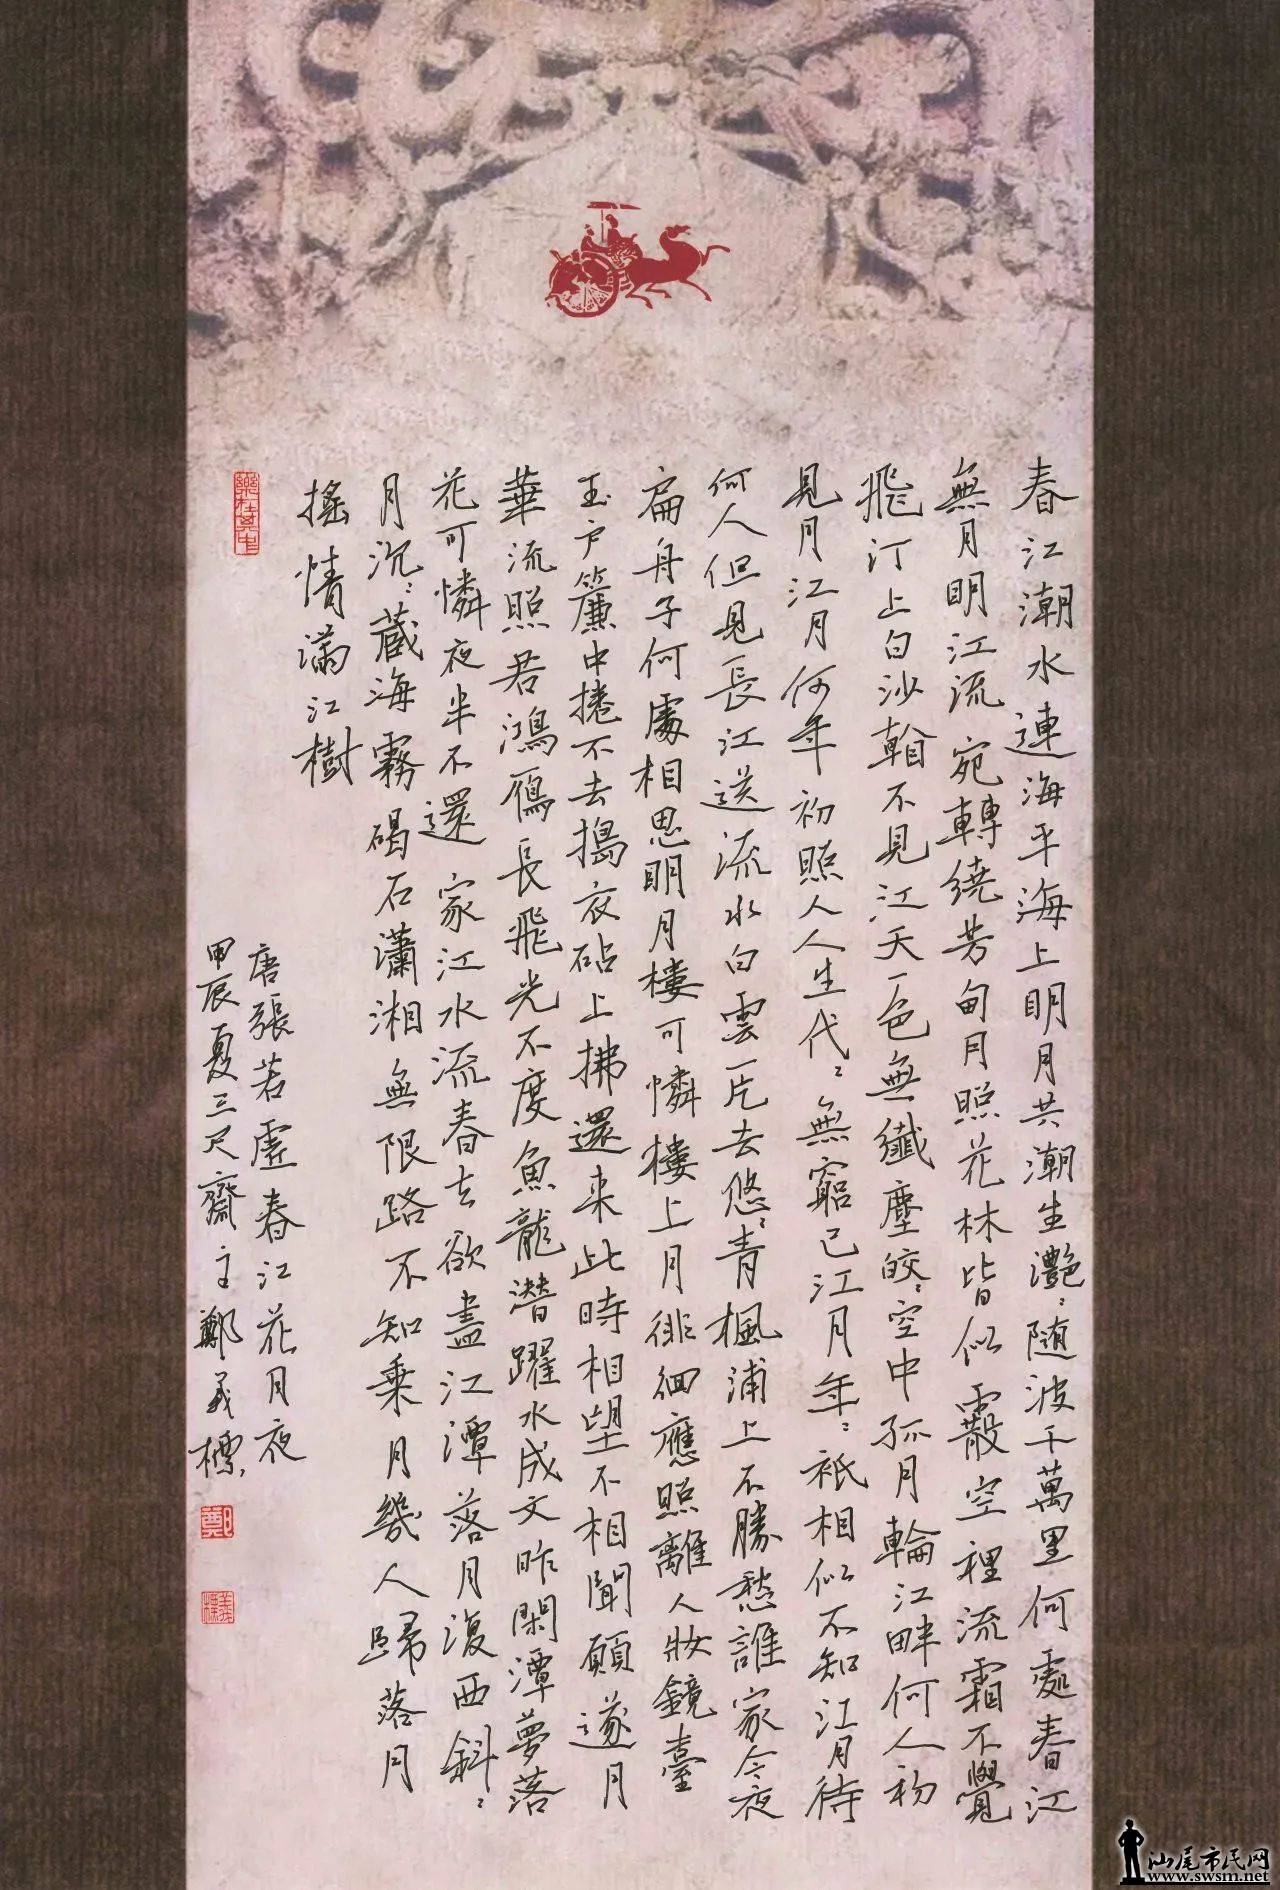 春江潮水連海平海上明月共潮生灧:随波千萬里何處春江
無月明江流宛轉繞芳甸月照花林皆似霰空裡流霜不覺
飛汀上白沙看不見江天一色無纖塵皎:空中孤月輪江畔何人初
見月江月何年初照人人生代:無窮已江月年:祇相似不知江月待
何人但見長江送流水白雲一片去悠:青楓浦上不勝愁誰家今夜
扁舟子何處相思明月樓可憐樓上月徘徊應照離人妝鏡臺
玉户簾中捲不去搗衣砧上拂還来此時相望不相聞願逐月
華流照君鴻雁長飛光不度魚龍潜躍水成文昨閑潭夢落
花可憐夜半不還家江水流春去欲盡江潭落月復西斜:
月沉:藏海霧碣石瀟湘無限路不知乗月幾人歸落月
搖情滿江樹
樂在其中
唐張若虛春江花月夜
甲辰夏三尺齋主鄭義標
鄭
義標
汕尾市民网
www.swsm.net